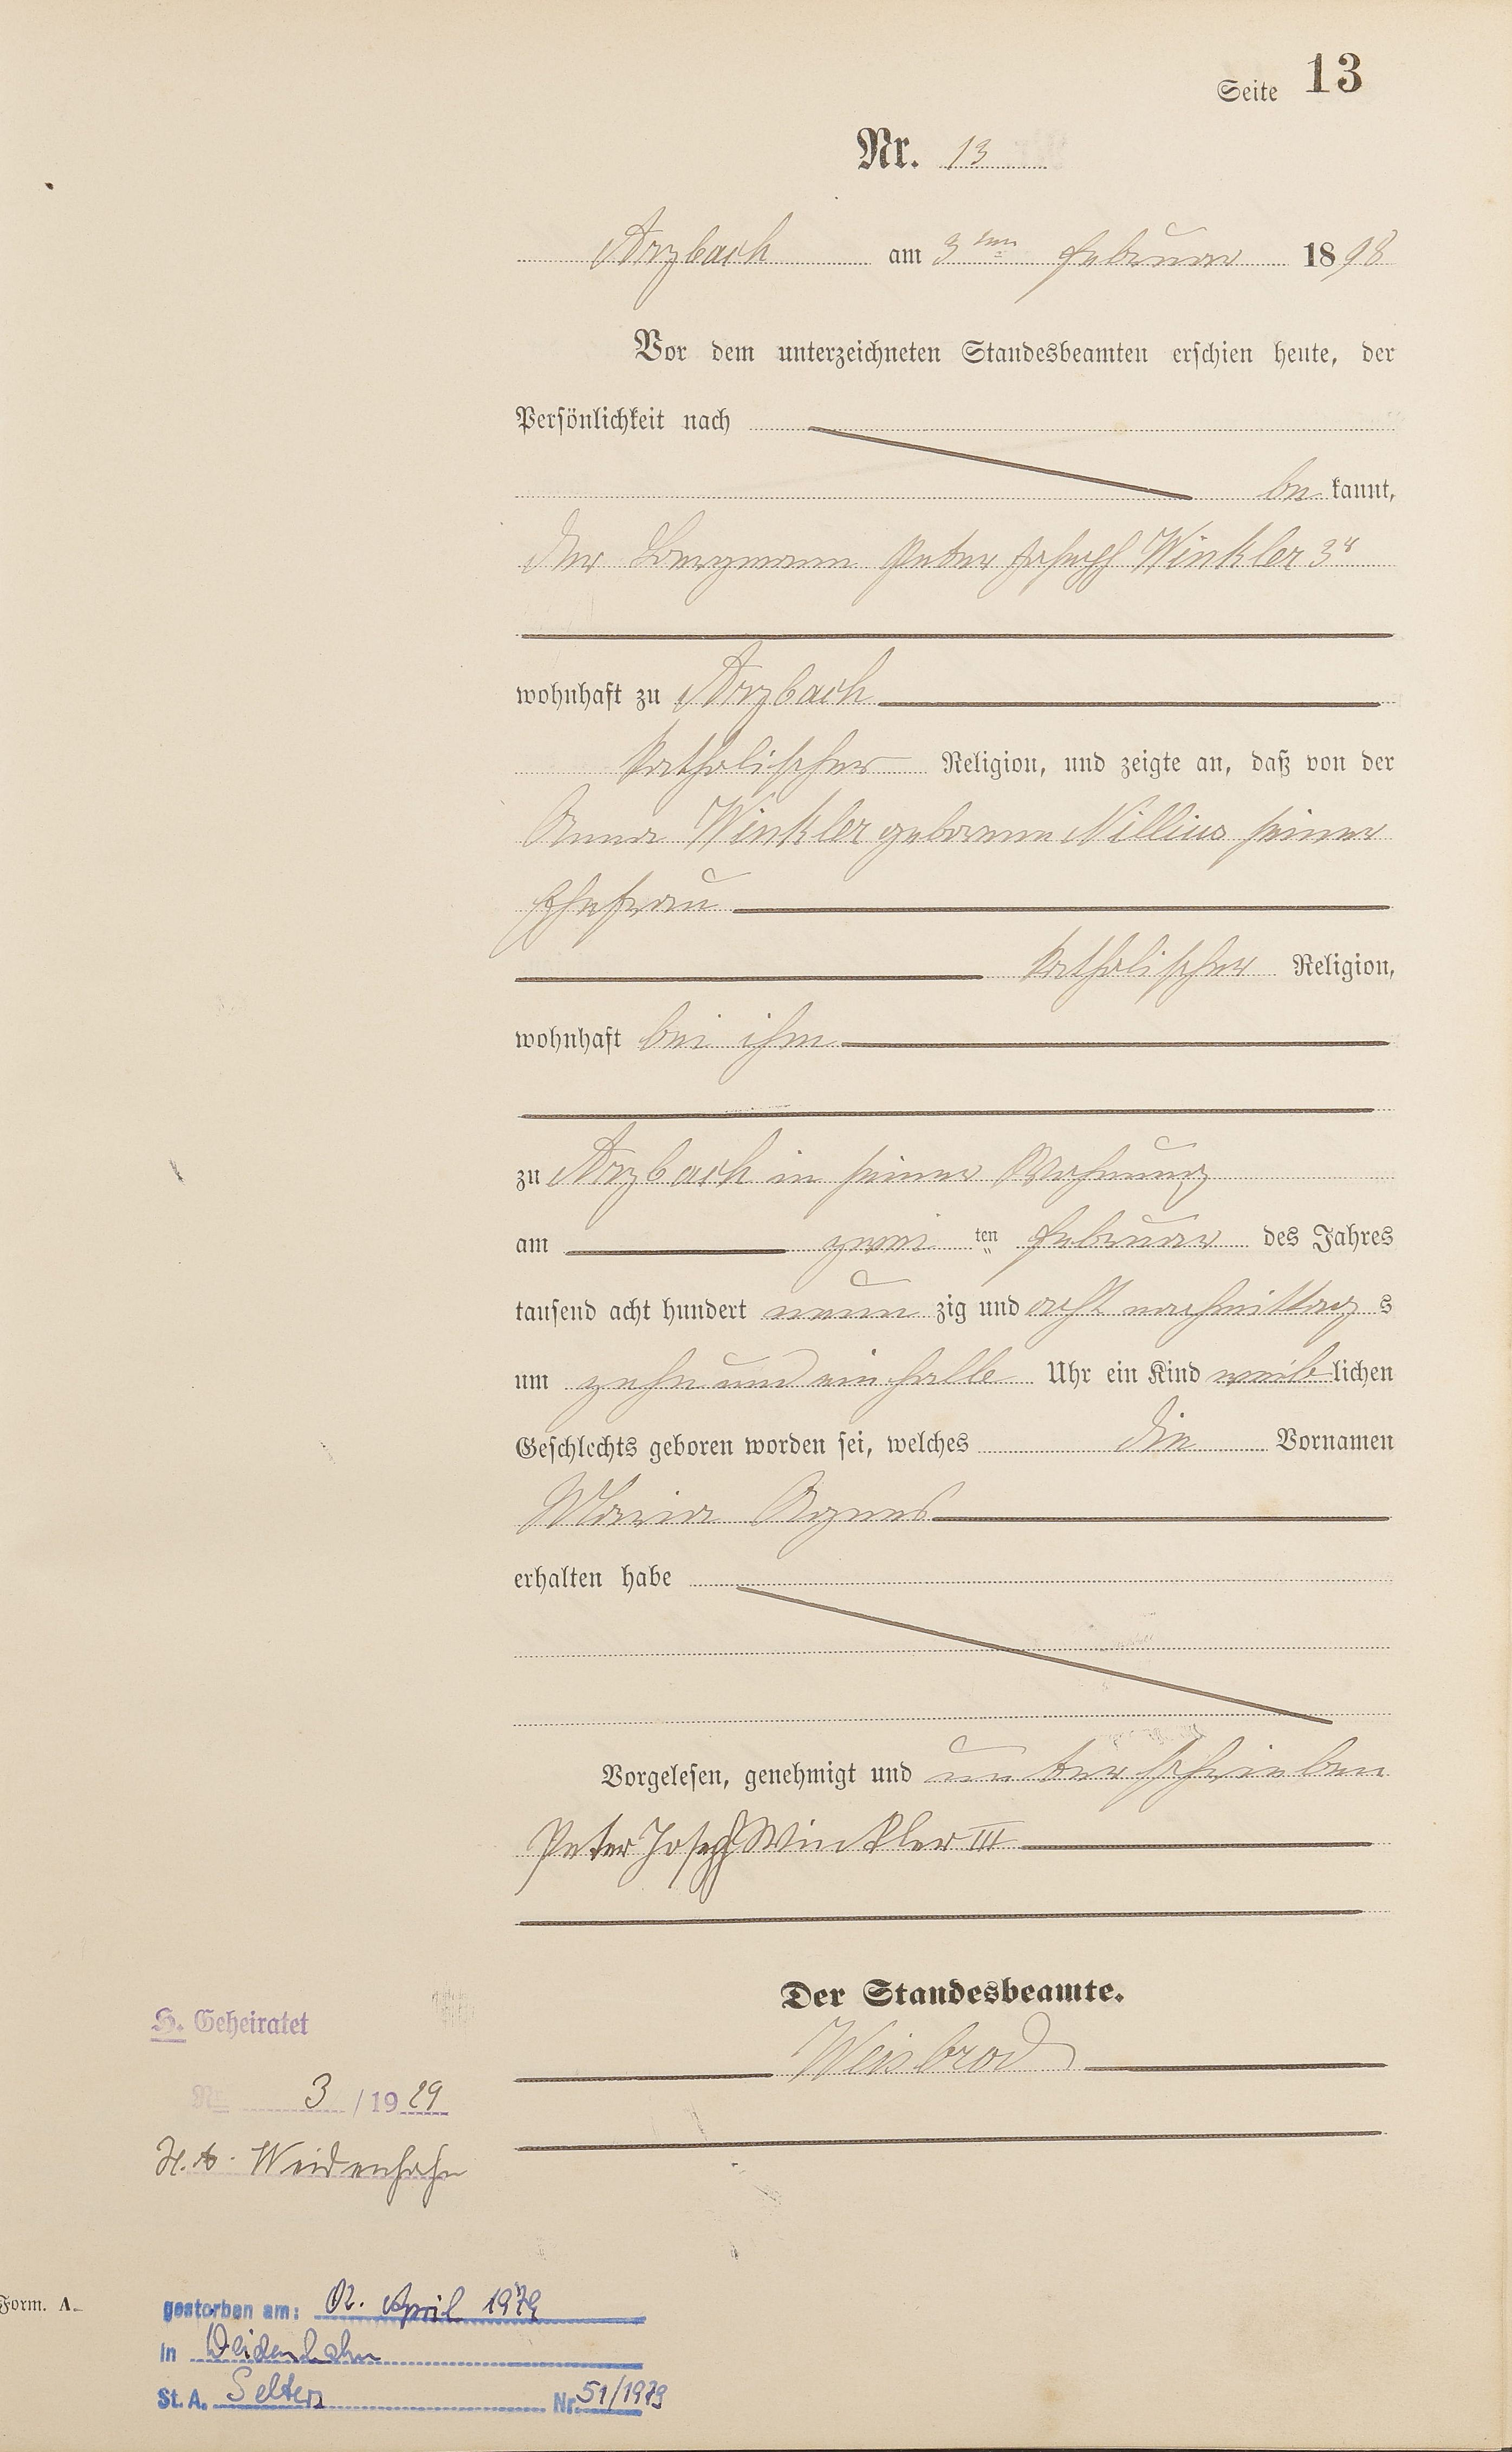 Seite 13
Nr. 13
Arzbach am 3ten Februar 1898
Vor dem unterzeichneten Standesbeamten erschien heute, der
Persönlichkeit nach
be kannt,
der Bergmann Peter Joseph Winkler 3r
wohnhaft zu Arzbach
katholischer Religion, und zeigte an, daß von der
Anna Winkler geborene Nillius seiner
Ehefrau
katholischer Religion,
wohnhaft bei ihm
zu Arzbach in seiner Wohnung
am zwei ten Februar des Jahres
tausend acht hundert neun zig und acht nachmittag s
um zehn und ein halb Uhr ein Kind weib lichen
Geschlechts geboren worden sei, welches die Vornamen
Maria Agnes
erhalten habe
Vorgelesen, genehmigt und unterschrieben
Peter Joseph Winkler III
Der Standesbeamte.
Weisbrod
H. Geheiratet
Nr. 3 / 19 29
St. A. Weidenhahn
Form. A.
gestorben am: 02. April 1979
in Weidenhahn
St. A. Selters Nr. 51/1979